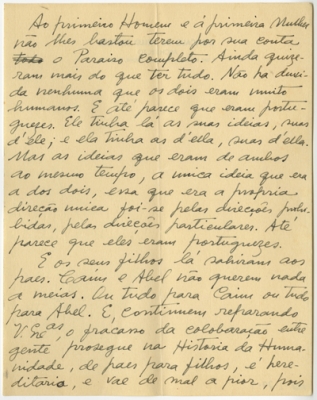 Ao primeiro Homem e á primeira Mulher
não lhes bastou terem por sua conta
todo o Paraiso completo. Ainda quize-
ram mais do que ter tudo. Não ha duvi-
da nenhuma que os dois eram muito
humanos. E até parece que eram portu-
guezes. Ele tinha lá as suas ideias, suas
d'ele; e ela tinha as d'ella, suas d'ella.
Mas as ideias que eram de ambos
ao mesmo tempo, a unica ideia que era
a dos dois, essa que era a propria
direção unica foi-se pelas direções prohi-
bidas, pelas direções particulares. Até
parece que eles eram portuguezes.
E os seus filhos lá sahiram aos
paes. Caim e Abel não querem nada
a meias. Ou tudo para Caim ou tudo
para Abel. E, continuem reparando
V. Exas, o fracasso da colobaração entre
gente prosegue na Historia da Huma-
nidade, de paes para filhos, é here-
ditario, e vae de mal a pior, pois